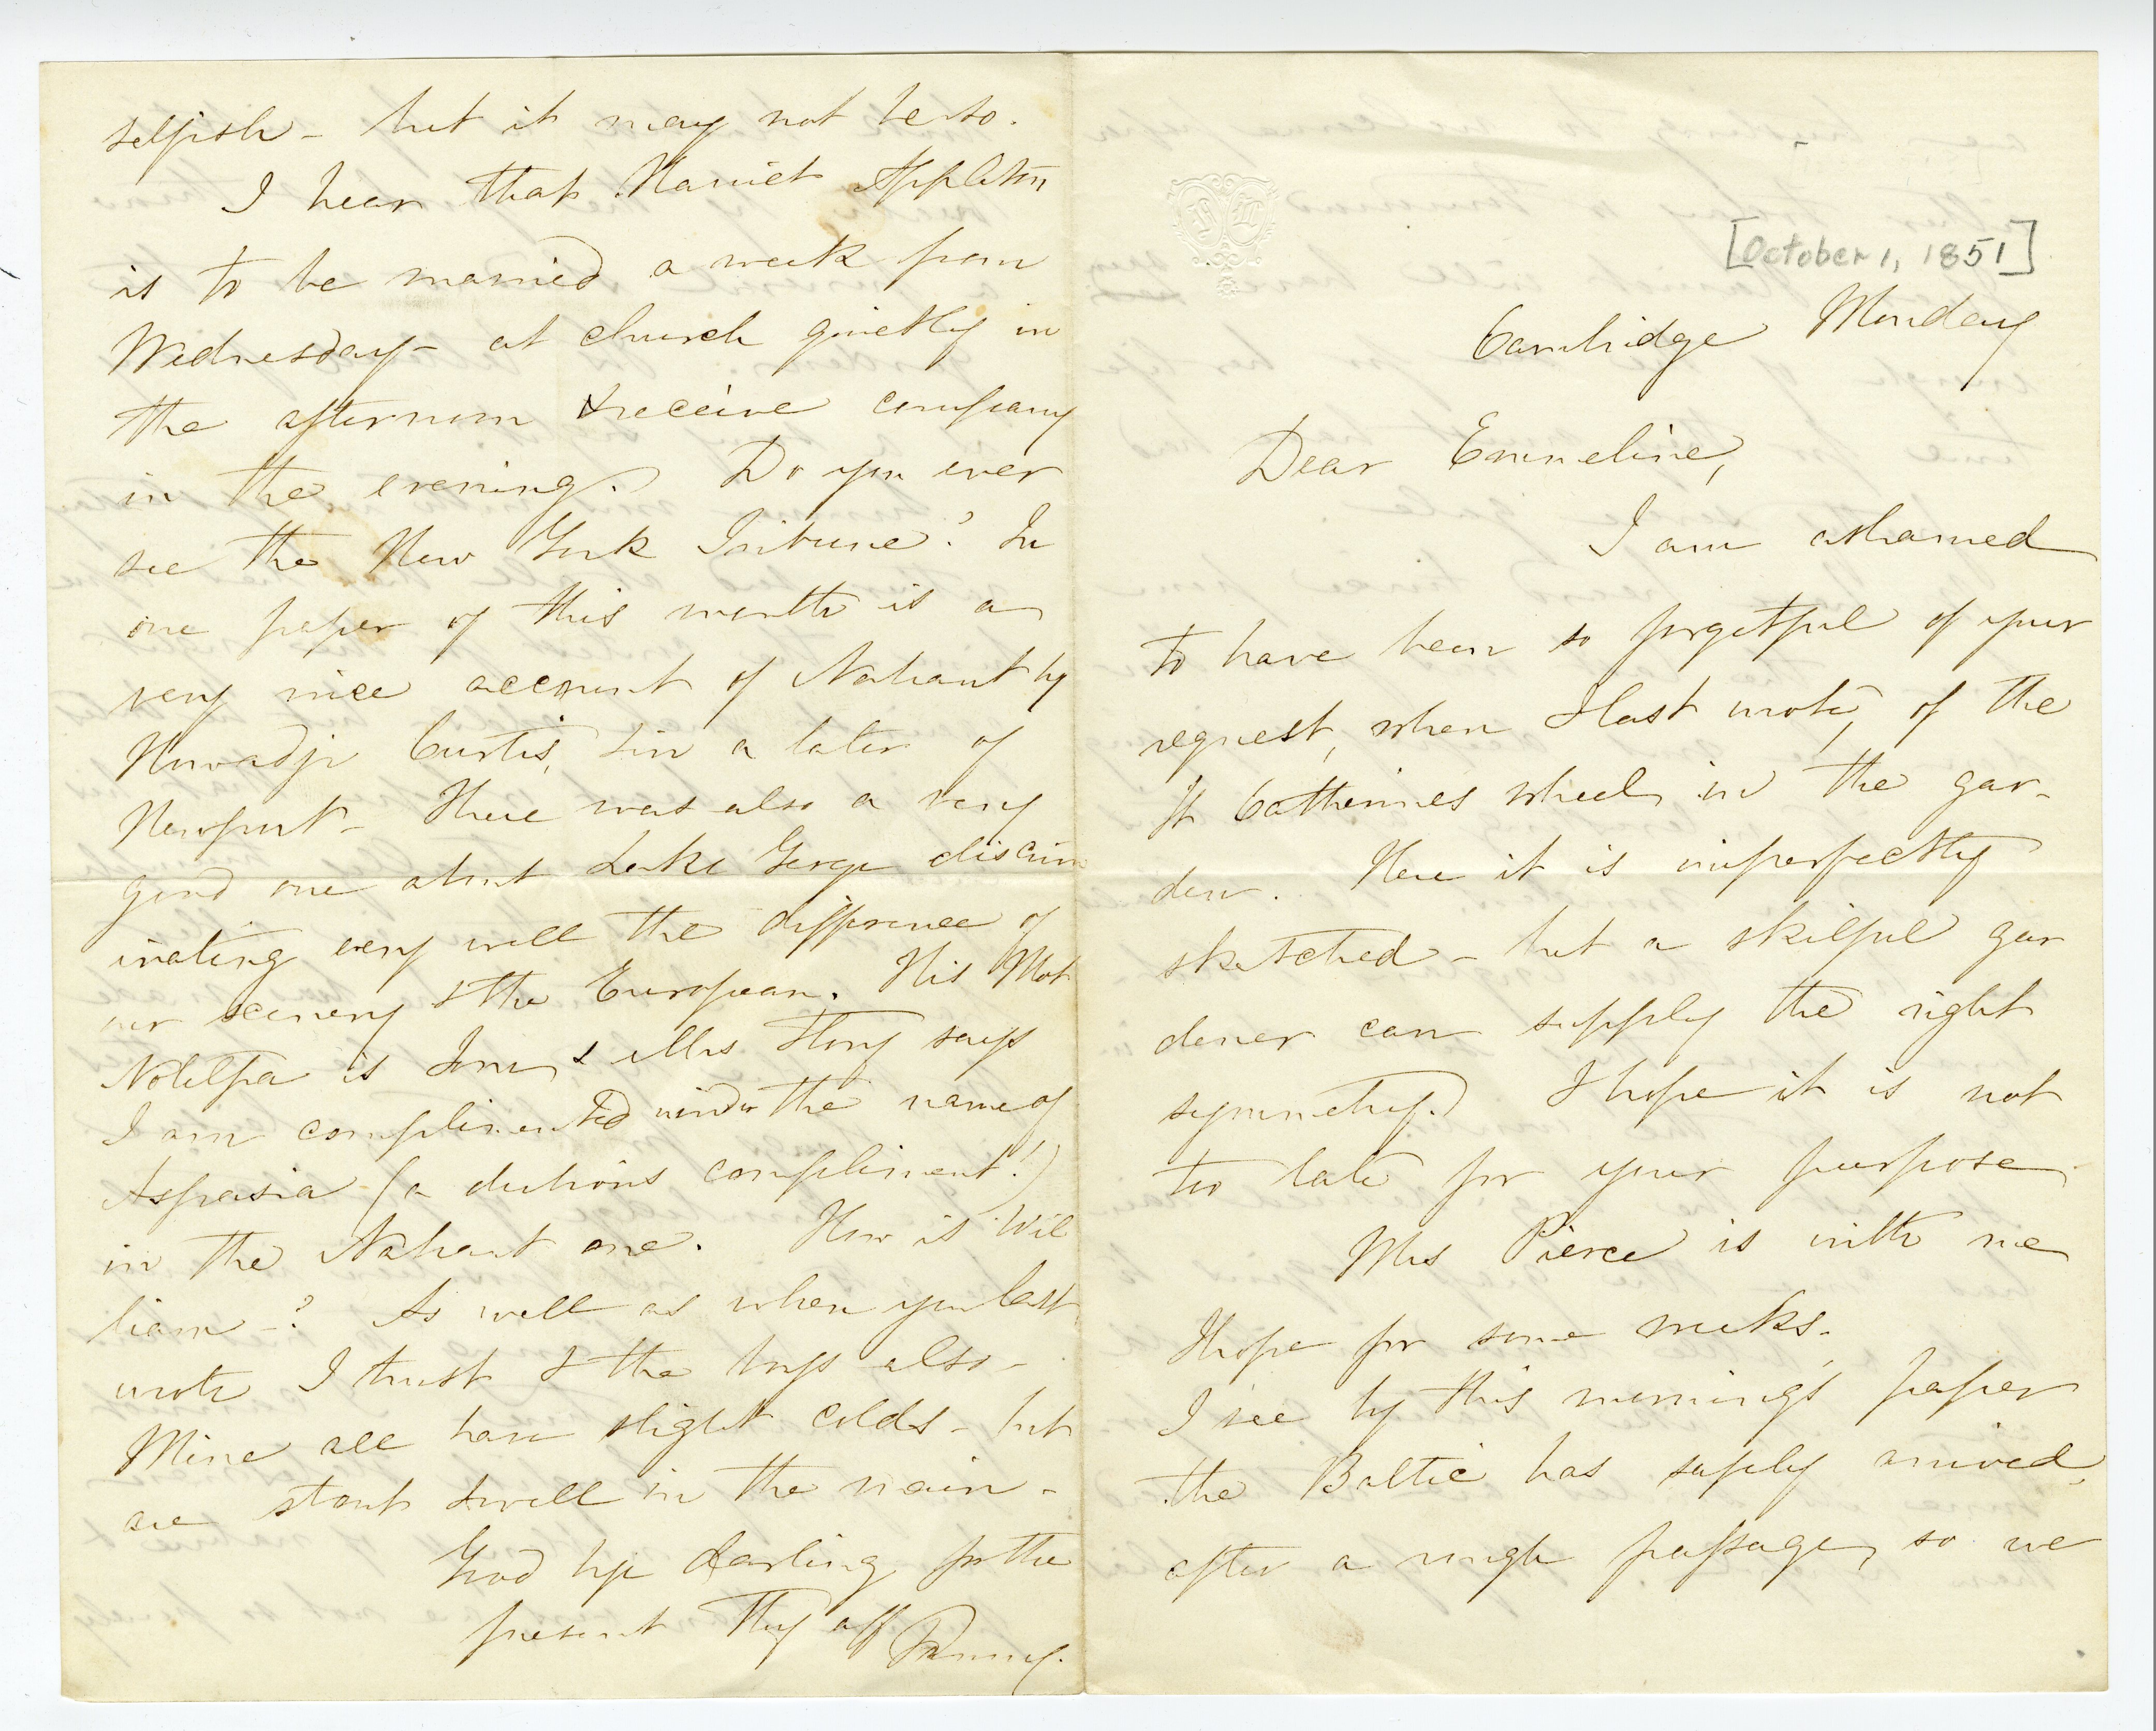 [October 1, 1851]
Cambridge Monday
Dear Emmeline,
I am ashamed
to have been so forgetful of your
request, when I last wrote, of the
St Catherines wheel, in the gar-
den. Here it is imperfectly
sketched - but a skilful gar
dener can supply the right
symmetry. I hope it is not
too late for your purpose.
Mrs Pierce is with me
I hope for some weeks.
I see by this morning's paper
the Baltic has safely arrived,
after a rough passage, so we
selfish - but it may not be so.
I hear that Harriet Appleton
is to be married a week from
Wednesday - at church quietly in
the afternoon & receive company
in the evening. Do you ever
see the New York Tribune? In
one paper of this month is a
very nice account of Nahant by
Howadji Curtis, & in a later of
Newport - There was also a very
good one about Lake George discrim
inating very well the difference of
our scenery & the European. His Mot
Notelpa is Tom, & Mrs Story says
I am complimented under the name of
Aspasia (a dubious compliment!)
in the Nahant one. How is Wil
liam -? As well as when you last
wrote I trust & the boys also -
Mine all have slight colds - but
are stout & well in the main -
Good bye darling for the
present Thy aff Fanny.